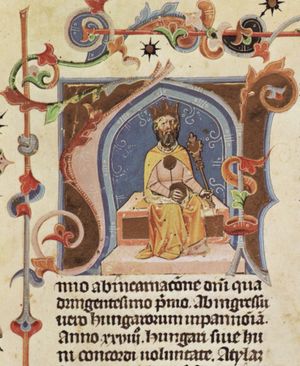 nno ab incarnacõne dñi qua
dringentesimo p̃mo. Ab ingressu
uero hungarorum in pannoniã.
Anno .xxviij. Hungari siue hu
ni concordi uoluntate. Atylaz